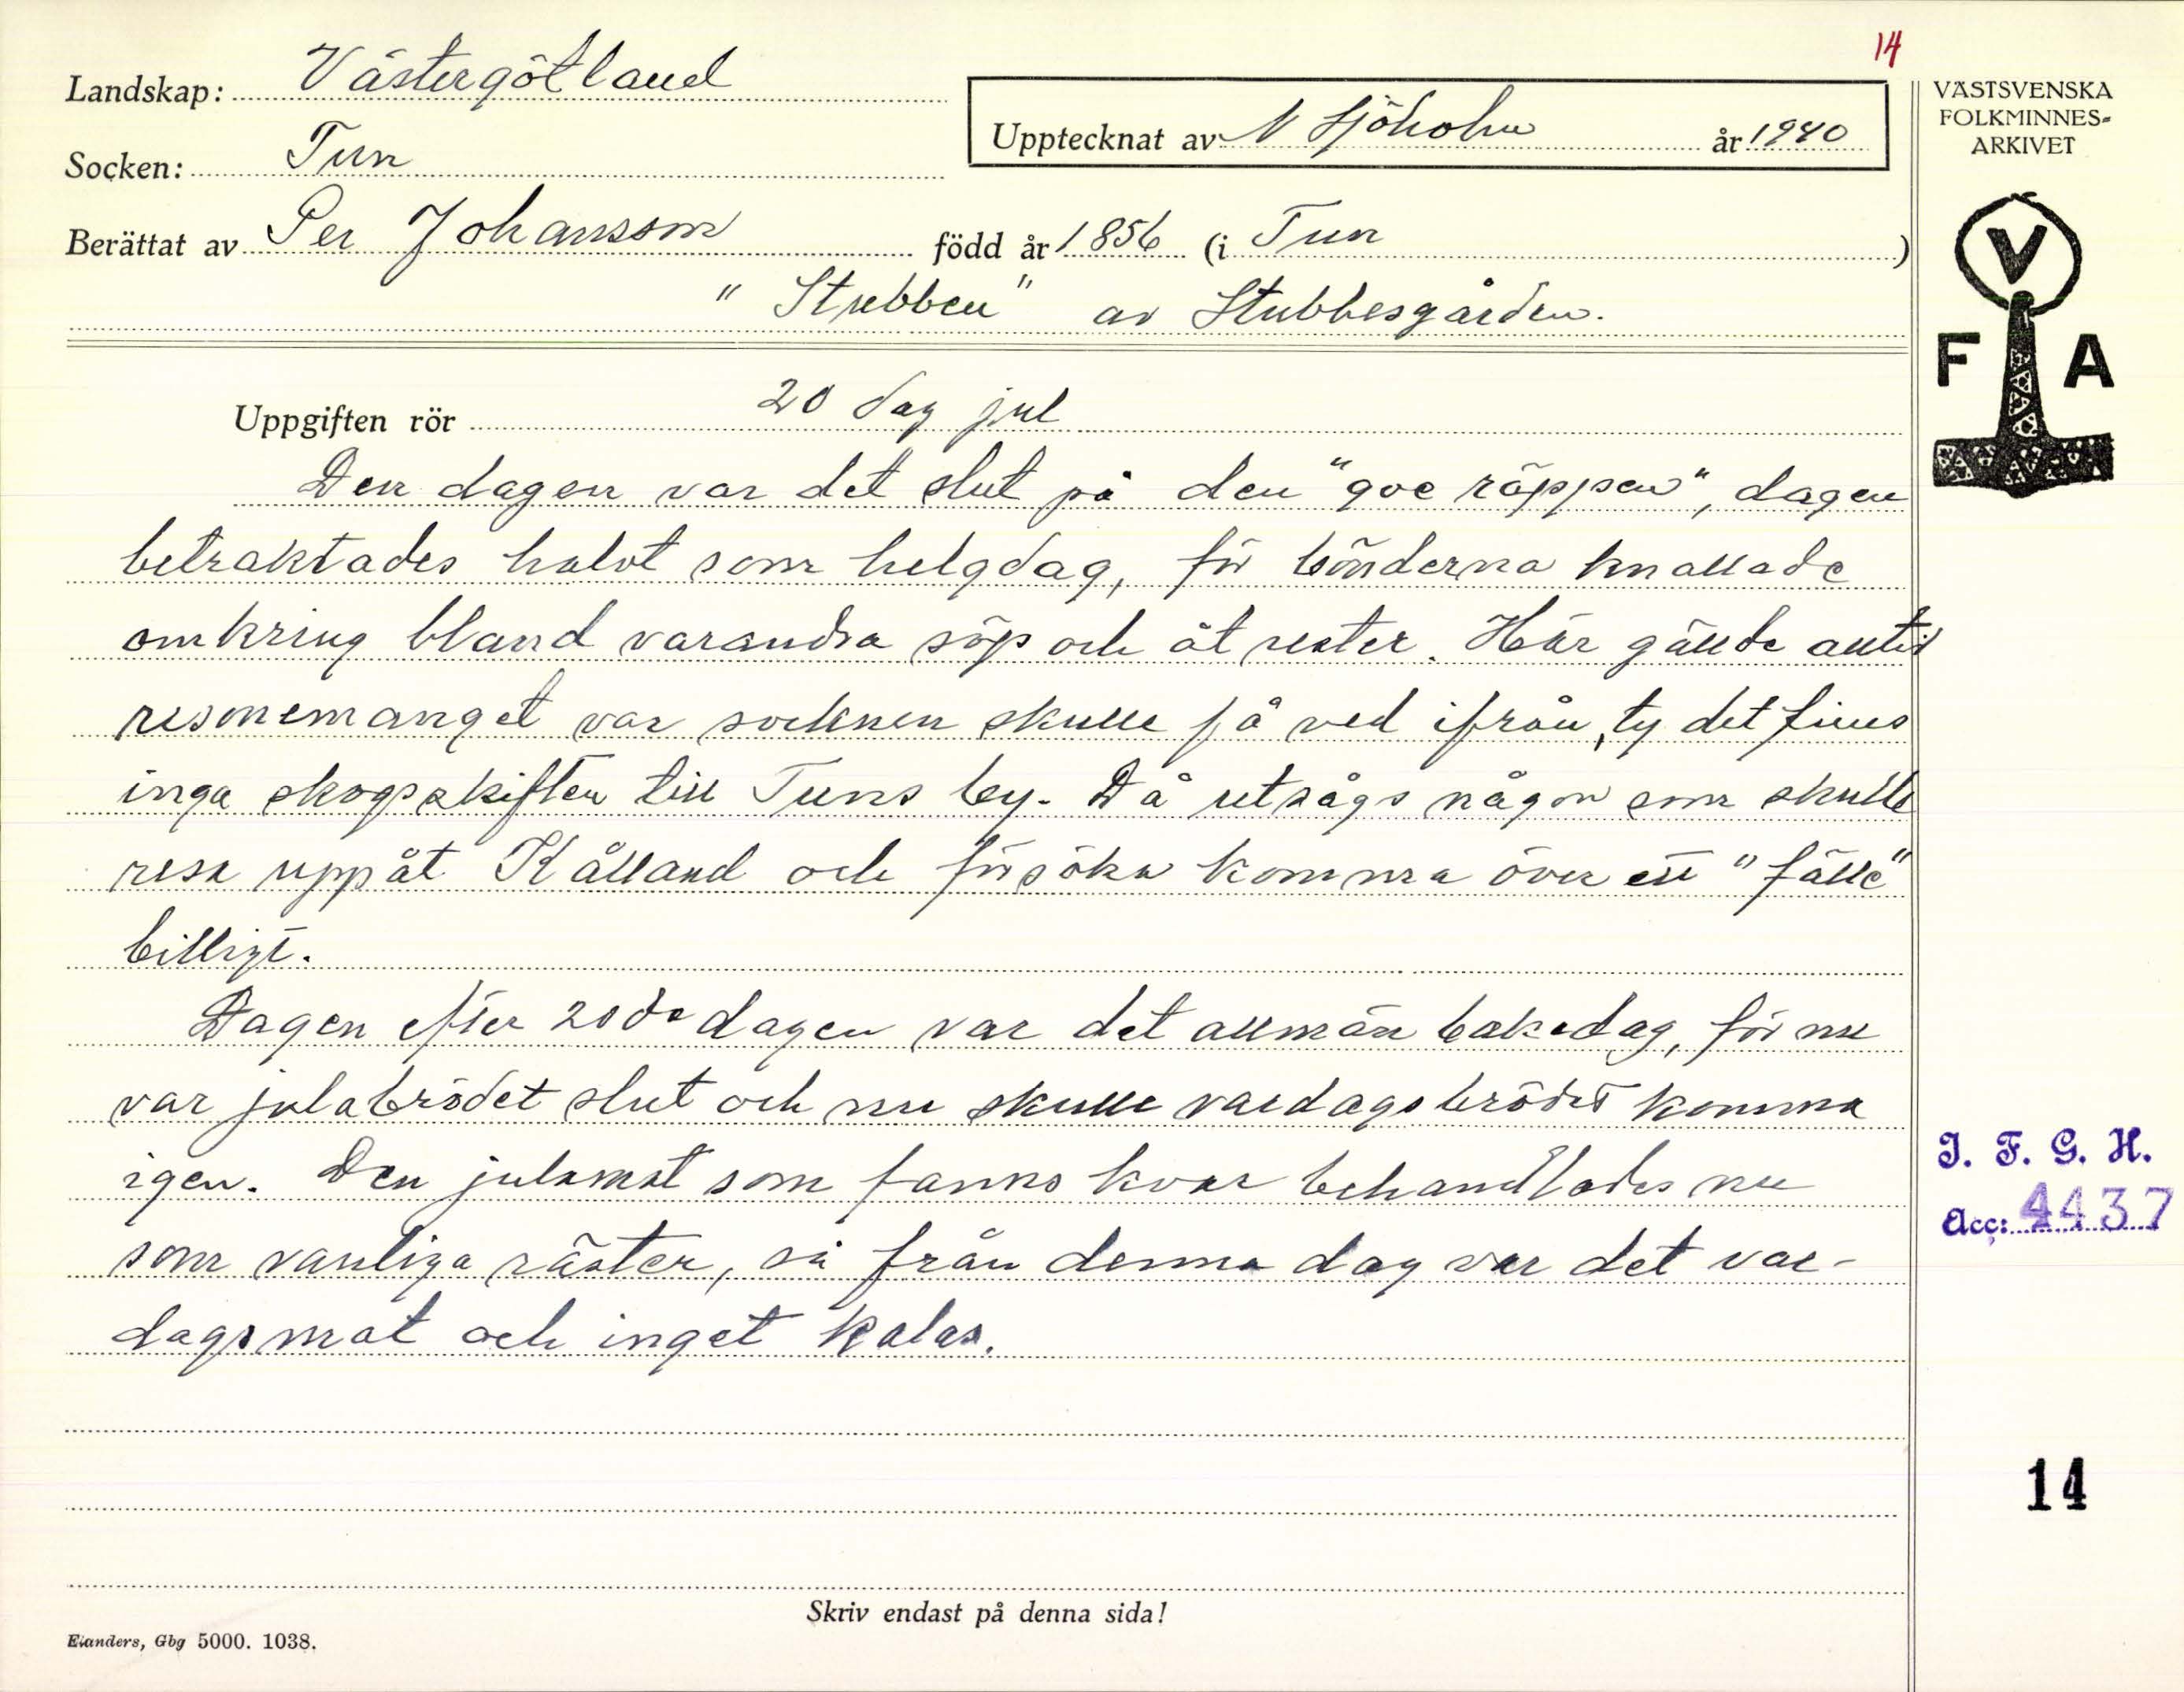 14
Landskap: Västergötland
Upptecknat av N Sjöholm år 1940
VÄSTSVENSKA
FOLKMINNES-
ARKIVET
Socken: Tun
Berättat av Per Johansson född år 1856 (i Tun)
"Stubben" av Stubbesgården.
V
F A
Uppgiften rör 20 dag jul
Den dagen var det slut på den "goe räppen", dagen
betraktades halvt som helgdag, för bönderna knallade
omkring bland varandra söp och åt rester. Här gällde alltid
resonemanget var socknen skulle få ved ifrån, ty det finns
inga skogsskiften till Tuns by. Då utsågs någon som skulle
resa uppåt Kålland och försöka komma över ett "fälle"
billigt.
Dagen efter 20de dagen var det allmän bakedag, för nu
var julabrödet slut och nu skulle vardagsbrödet komma
igen. Den julamat som fanns kvar behandlades nu
som vanliga räster, så från denna dag var det var-
dagsmat och inget kalas.
I. F. G. H.
Acc: 4437
14
Skriv endast på denna sida!
Elanders, Gbg 5000. 1038.